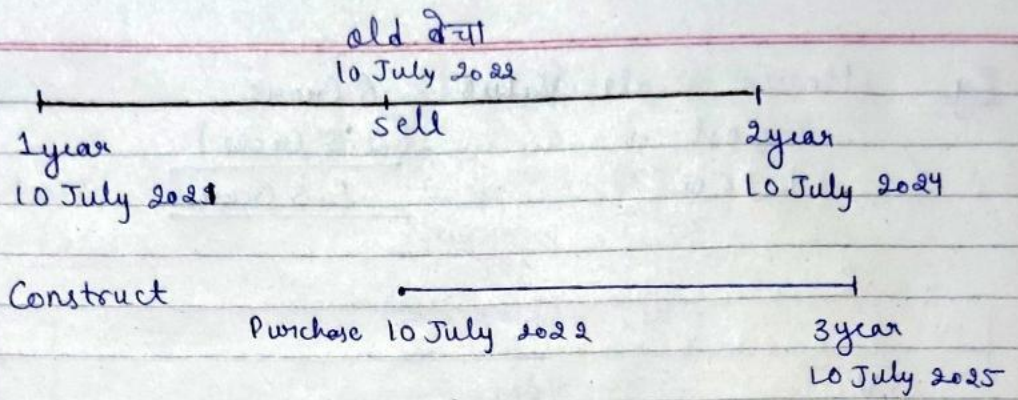 old बेचा
10 July 2022
sell
1year
10 July 2021
2year
10 July 2024
Construct
Purchase 10 July 2022
3year
10 July 2025